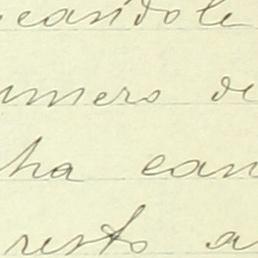 eandole
umero de
ha can
resto a